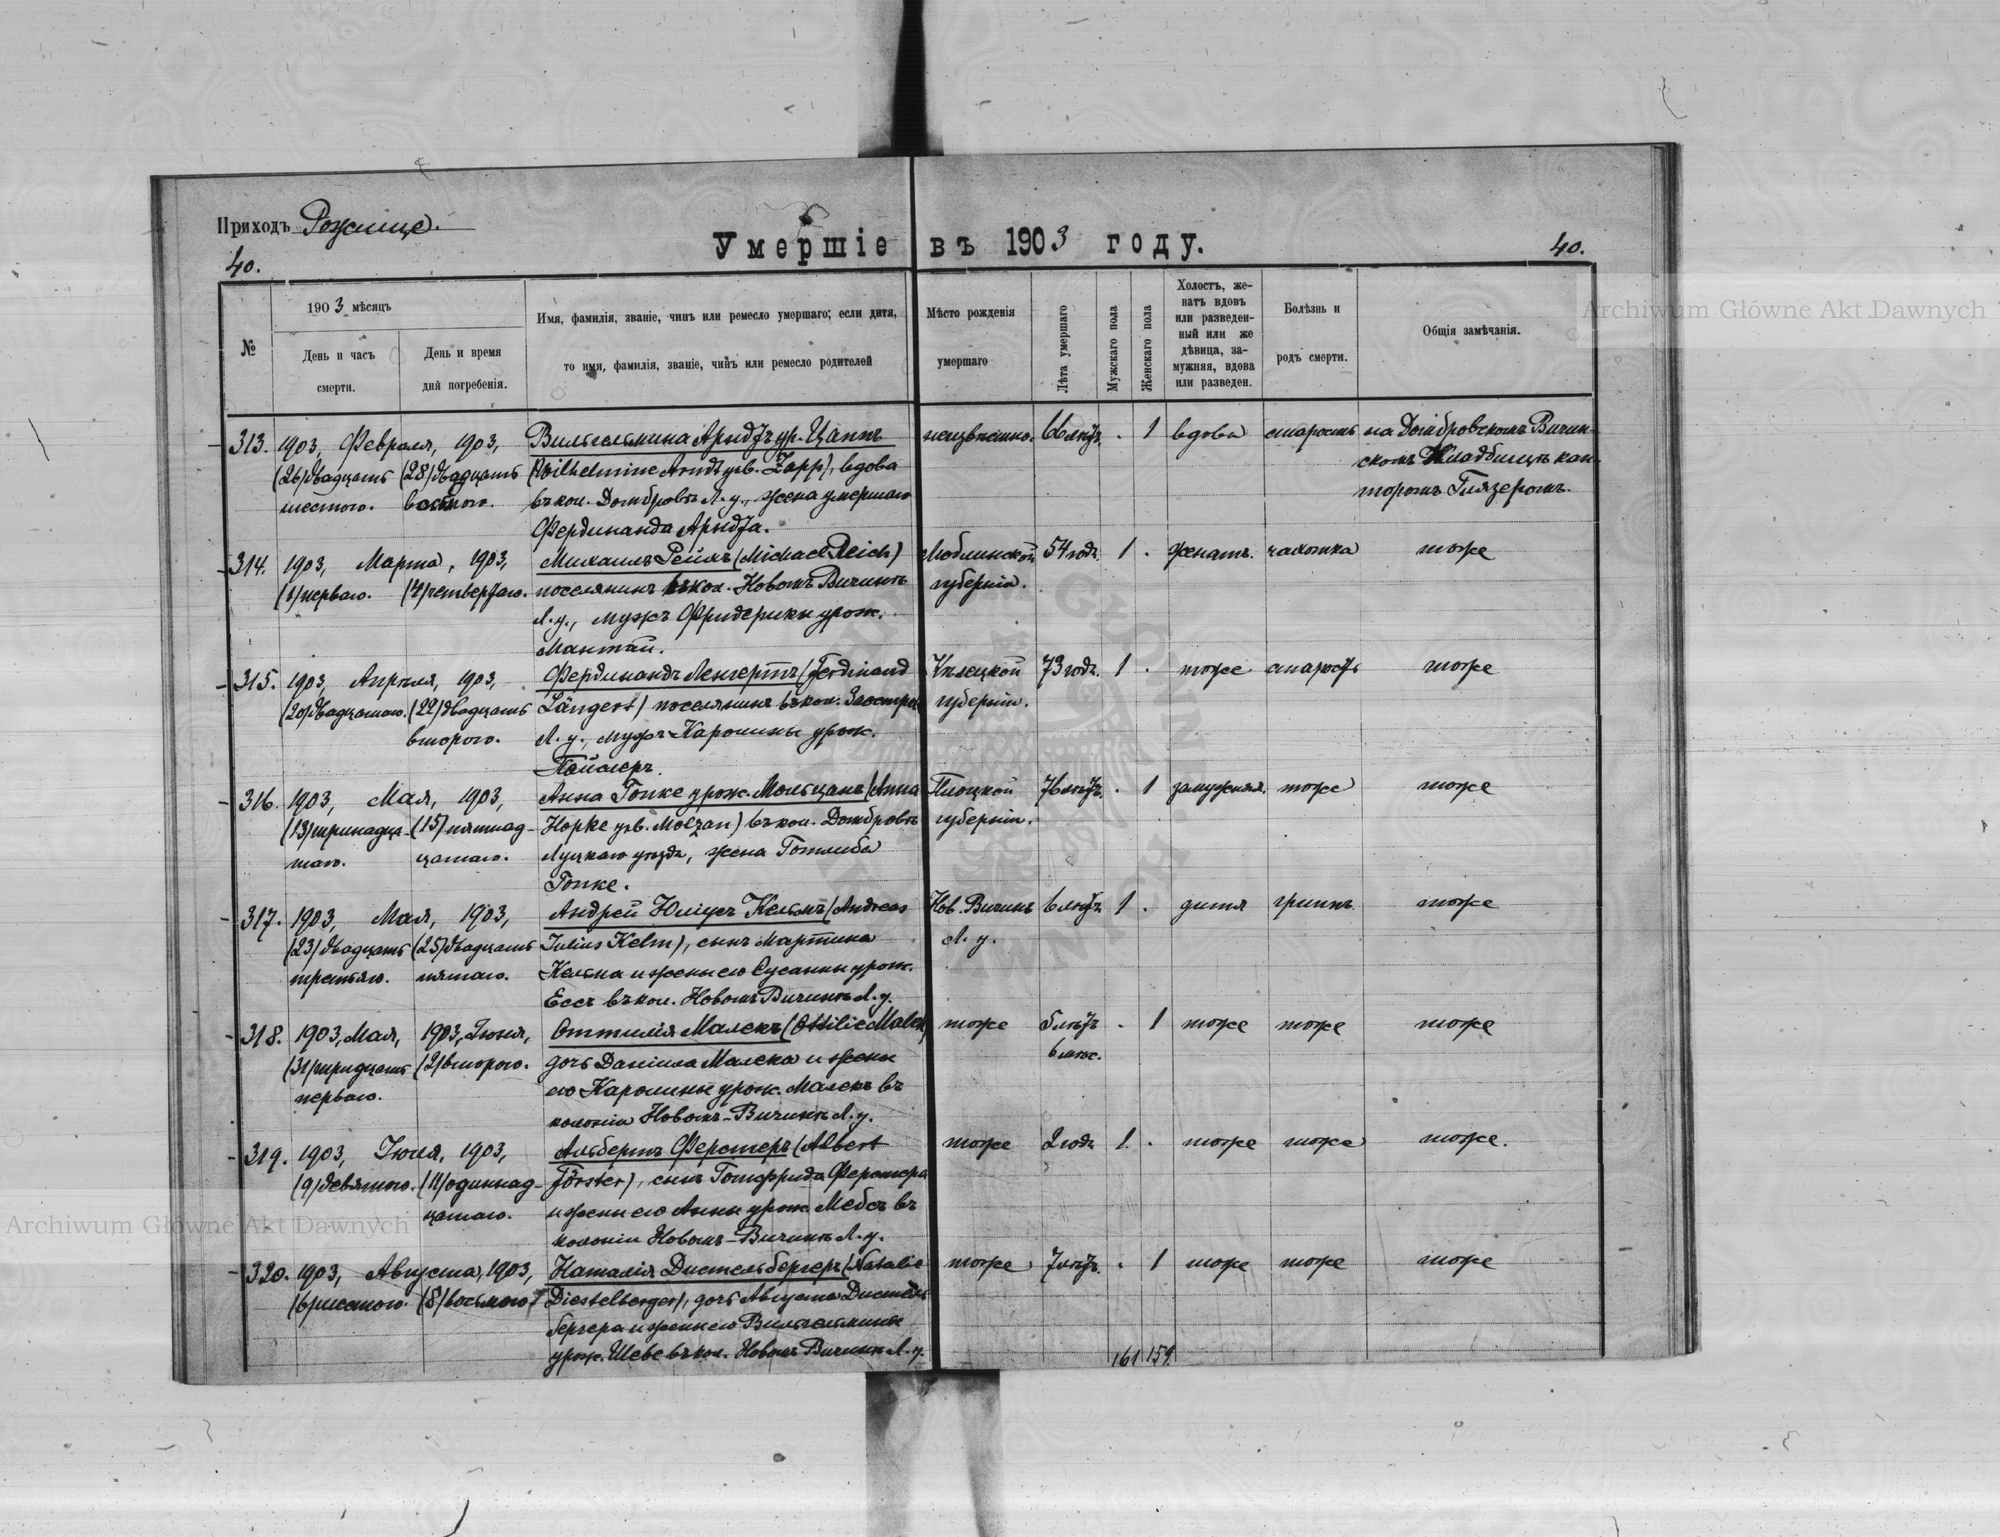 Приходъ Рожище.
Умершіе въ 1903 году.
40.
40.
№
1903 мѣсяцъ
День и часъ
смерти.
День и время
дни погребенія.
Имя, фамилія, званіе, чинъ или ремесло умершаго; если дитя,
то имя, фамилія, званіе, чинъ или ремесло родителей
Мѣсто рожденія
умершаго
Лѣта умершаго
Мужскаго пола
Женскаго пола
Холостъ, же-
натъ вдовъ
или разведен-
ный или же
дѣвица, за-
мужняя, вдова
или разведен.
Болѣзнь и
родъ смерти.
Общія замѣчанія.
313. 1903, Февраля, 1903, Вильгельмина Арндтъ ур. Цаппъ неизвѣстно. 66 лѣтъ. . 1 вдова старость на Домбровскомъ Вичин-
(26) двадцать (28) двадцать (Wilhelmine Arndt geb. Zapp), вдова скомъ кладбищѣ кан-
шестого. восьмого. въ кол. Домбровѣ Л. у., жена умершаго торомъ Глязеромъ.
Фердинанда Арндта.
314. 1903, Марта, 1903, Михаилъ Рейхъ (Michael Reich) Люблинской 54 годъ. 1 . женатъ. чахотка тоже
(1) перваго. (4) четвертаго. поселянинъ въ кол. Новомъ Вичинѣ губерніи.
Л. у., мужъ Фридерики урож.
Мантай.
315. 1903, Апрѣля, 1903, Фердинандъ Ленгертъ (Ferdinand Кѣлецкой 73 годъ. 1 . тоже старость тоже
(20) двадцатаго. (22) двадцать Längert) поселянинъ въ кол. губерніи.
второго. Л. у., мужъ Каролины урож.
316. 1903, Мая, 1903, Анна Гопке урож. Мольцанъ (Anna Плоцкой 76 лѣтъ. . 1 замужняя. тоже тоже
(13) тринадца- (15) пятнад- Hopke geb. Molzan) въ кол. Домбровѣ губерніи.
таго. цатаго. Луцкаго уѣзда, жена Готлиба
Гопке.
317. 1903, Мая, 1903, Андрей Юліусъ Кельмъ (Andreas Нов. Вичинъ 6 лѣтъ 1 . дитя гриппъ. тоже
(23) двадцать (25) двадцать Julius Kelm), сынъ Мартина Л. у.
третьяго. пятаго. Кельма и жены его Сусанны урож.
Ессъ въ кол. Новомъ Вичинѣ Л. у.
318. 1903, Мая, 1903, Іюня, Оттилія Малекъ (Ottilie Malek) тоже 5 лѣтъ . 1 тоже тоже тоже
(31) тридцать (2) второго. дочь Даніила Малека и жены 6 мѣс.
перваго. его Каролины урож. Малекъ въ
колоніи Новомъ-Вичинѣ Л. у.
319. 1903, Іюля, 1903, Альбертъ Ферстеръ (Albert тоже 2 годъ 1. . тоже тоже тоже.
(9) девятого. (11) одиннад- Förster), сынъ Готфрида Ферстера
цатаго. и жены его Анны урож. Мебсъ въ
колоніи Новомъ-Вичинѣ Л. у.
320. 1903, Августа, 1903, Наталія Дистельбергеръ (Natalie тоже 7 лѣтъ. . 1 тоже тоже тоже
(6) шестого. (8) восьмого. Diestelberger), дочь Августа Дистель-
бергера и жены его Вильгельмины
урож. Шеве въ кол. Новомъ Вичинѣ Л. у.
161 159.
Archiwum Główne Akt Dawnych
Archiwum Główne Akt Dawnych